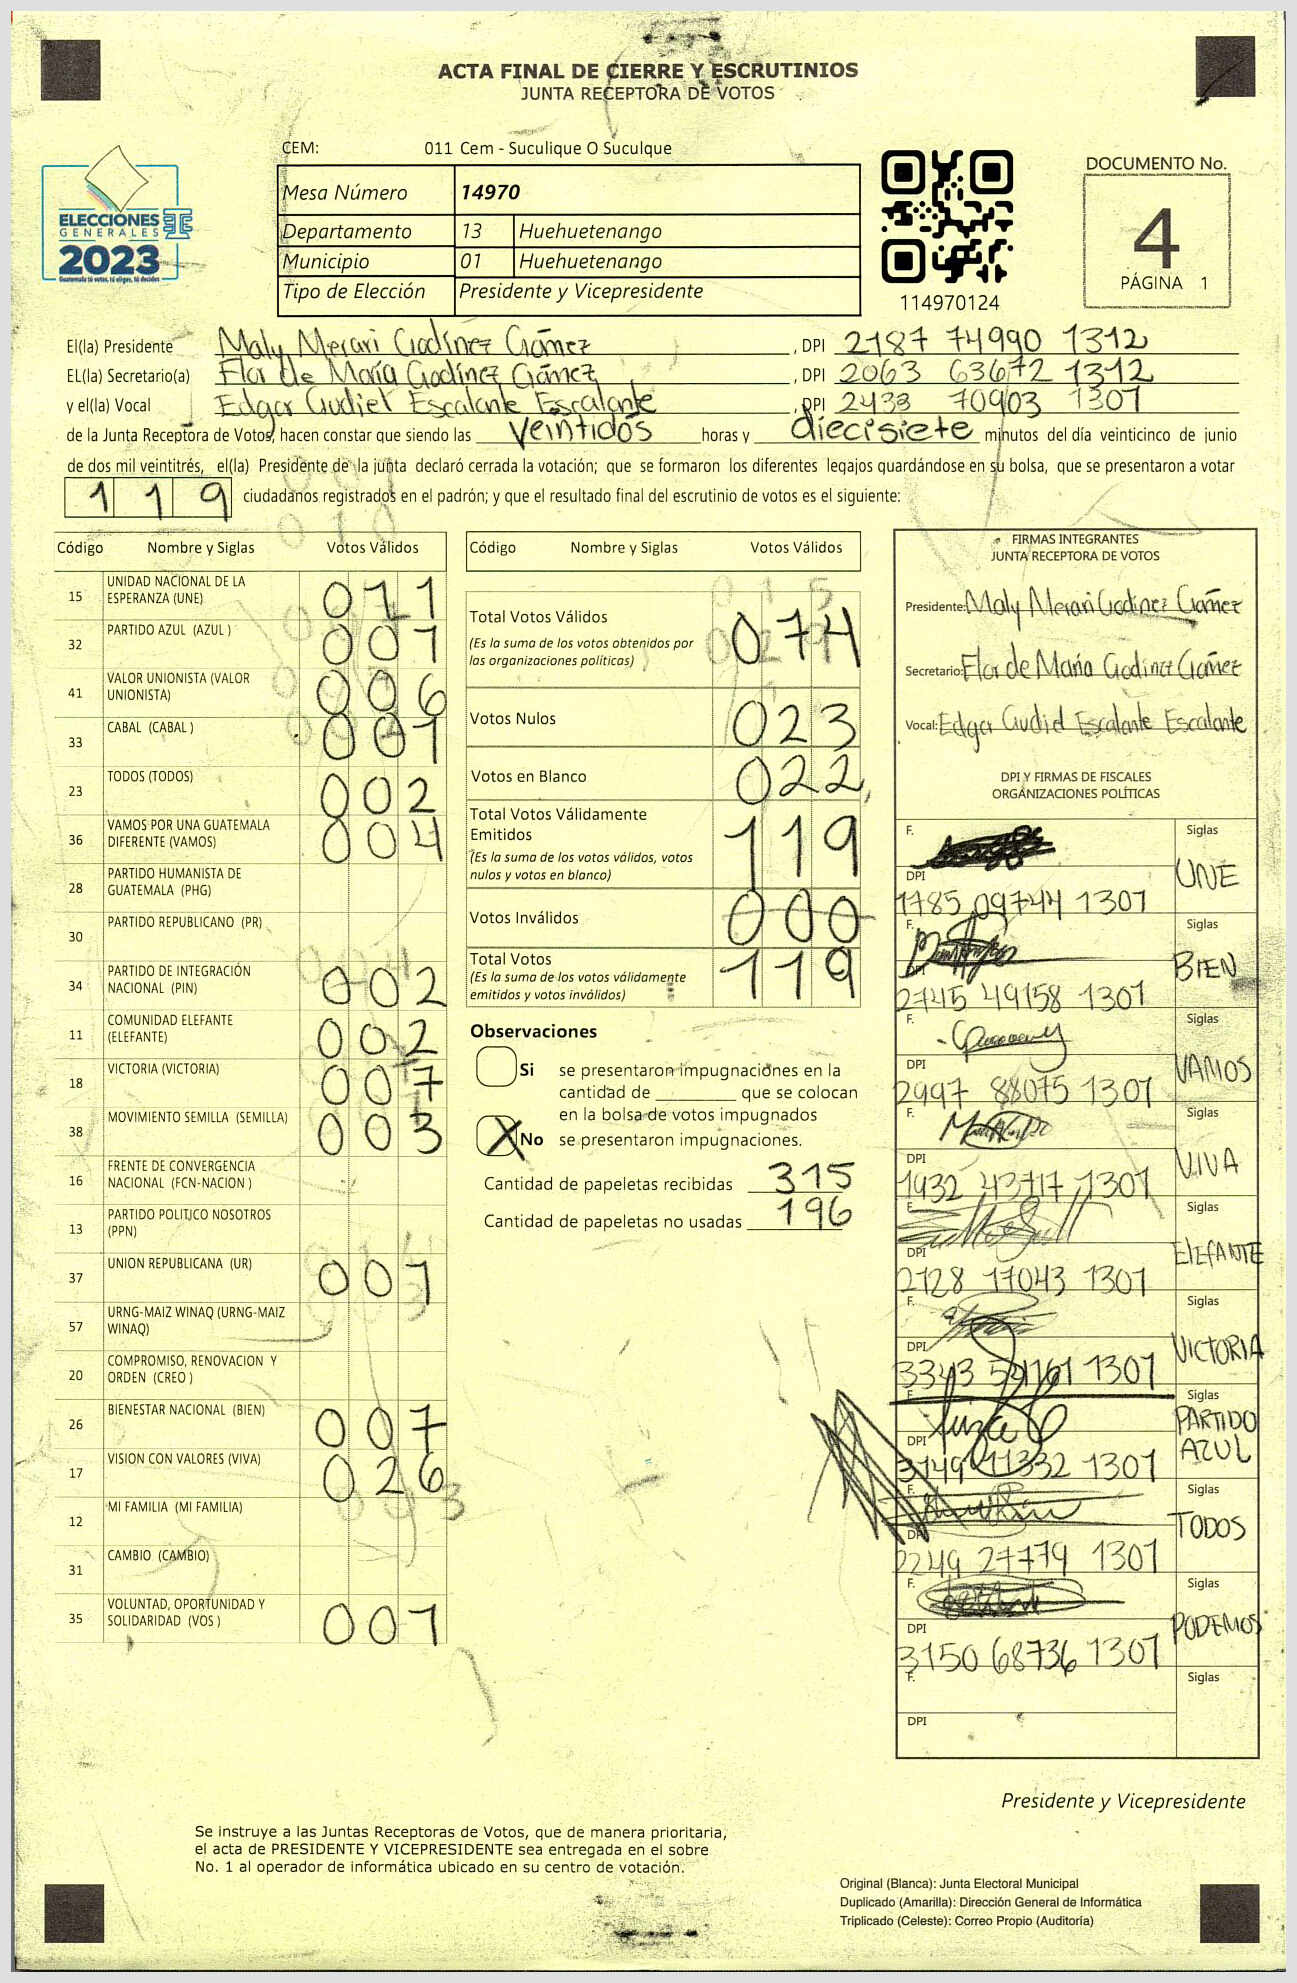 ACTA FINAL DE CIERRE Y ESCRUTINIOS
JUNTA RECEPTORA DE VOTOS
CEM: 011 Cem - Suculique O Suculque
ELECCIONES
GENERALES
2023
Guatemala tú votas, tú eliges, tú decides
Mesa Número 14970
Departamento 13 Huehuetenango
Municipio 01 Huehuetenango
Tipo de Elección Presidente y Vicepresidente
114970124
DOCUMENTO No.
4
PÁGINA 1
El(la) Presidente Maly Merari Godínez Gámez , DPI 2187 74990 1312
EL(la) Secretario(a) Flor de María Godínez Gámez , DPI 2063 63672 1312
y el(la) Vocal Edgar Gudiel Escalante Escalante , DPI 2438 70903 1307
de la Junta Receptora de Votos, hacen constar que siendo las veintidos horas y diecisiete minutos del día veinticinco de junio
de dos mil veintitrés, el(la) Presidente de la junta declaró cerrada la votación; que se formaron los diferentes legajos quardándose en su bolsa, que se presentaron a votar
119 ciudadanos registrados en el padrón; y que el resultado final del escrutinio de votos es el siguiente:
Código Nombre y Siglas Votos Válidos
15 UNIDAD NACIONAL DE LA
ESPERANZA (UNE) 011
32 PARTIDO AZUL (AZUL ) 001
41 VALOR UNIONISTA (VALOR
UNIONISTA) 006
33 CABAL (CABAL ) 001
23 TODOS (TODOS) 002
36 VAMOS POR UNA GUATEMALA
DIFERENTE (VAMOS) 004
28 PARTIDO HUMANISTA DE
GUATEMALA (PHG)
30 PARTIDO REPUBLICANO (PR)
34 PARTIDO DE INTEGRACIÓN
NACIONAL (PIN) 002
11 COMUNIDAD ELEFANTE
(ELEFANTE) 002
18 VICTORIA (VICTORIA) 007
38 MOVIMIENTO SEMILLA (SEMILLA) 003
16 FRENTE DE CONVERGENCIA
NACIONAL (FCN-NACION )
13 PARTIDO POLITICO NOSOTROS
(PPN)
37 UNION REPUBLICANA (UR) 001
57 URNG-MAIZ WINAQ (URNG-MAIZ
WINAQ)
20 COMPROMISO, RENOVACION Y
ORDEN (CREO )
26 BIENESTAR NACIONAL (BIEN) 007
17 VISION CON VALORES (VIVA) 026
12 MI FAMILIA (MI FAMILIA)
31 CAMBIO (CAMBIO)
35 VOLUNTAD, OPORTUNIDAD Y
SOLIDARIDAD (VOS ) 001
Código Nombre y Siglas Votos Válidos
Total Votos Válidos 074
(Es la suma de los votos obtenidos por
las organizaciones políticas)
Votos Nulos 023
Votos en Blanco 022
Total Votos Válidamente
Emitidos 119
(Es la suma de los votos válidos, votos
nulos y votos en blanco)
Votos Inválidos 000
Total Votos 119
(Es la suma de los votos válidamente
emitidos y votos inválidos)
Observaciones
Si se presentaron impugnaciones en la
cantidad de ________ que se colocan
en la bolsa de votos impugnados
X No se presentaron impugnaciones.
Cantidad de papeletas recibidas 315
Cantidad de papeletas no usadas 196
FIRMAS INTEGRANTES
JUNTA RECEPTORA DE VOTOS
Presidente: Maly Merari Godinez Gámez
Secretario: Flor de María Godinez Gámez
Vocal: Edgar Gudiel Escalante Escalante
DPI Y FIRMAS DE FISCALES
ORGANIZACIONES POLÍTICAS
F. Siglas
UNE
DPI
1785 09744 1307
F. Siglas
BIEN
DPI
2745 49158 1307
F. Siglas
VAMOS
DPI
2997 88075 1307
F. Siglas
VIVA
DPI
1932 43717 1307
F. Siglas
ElEFANTE
DPI
2128 17043 1307
F. Siglas
VICTORIA
DPI
1307
F. Siglas
PARTIDO
AZUL
DPI
3149 11332 1307
F. Siglas
TODOS
DPI
2249 27779 1307
F. Siglas
PODEMOS
DPI
3150 68736 1307
F. Siglas
DPI
Presidente y Vicepresidente
Se instruye a las Juntas Receptoras de Votos, que de manera prioritaria,
el acta de PRESIDENTE Y VICEPRESIDENTE sea entregada en el sobre
No. 1 al operador de informática ubicado en su centro de votación.
Original (Blanca): Junta Electoral Municipal
Duplicado (Amarilla): Dirección General de Informática
Triplicado (Celeste): Correo Propio (Auditoría)